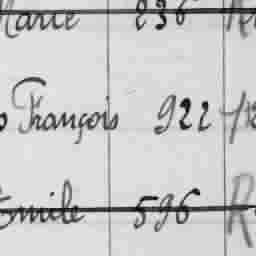 Marie 236
François 922
Emile 596 R